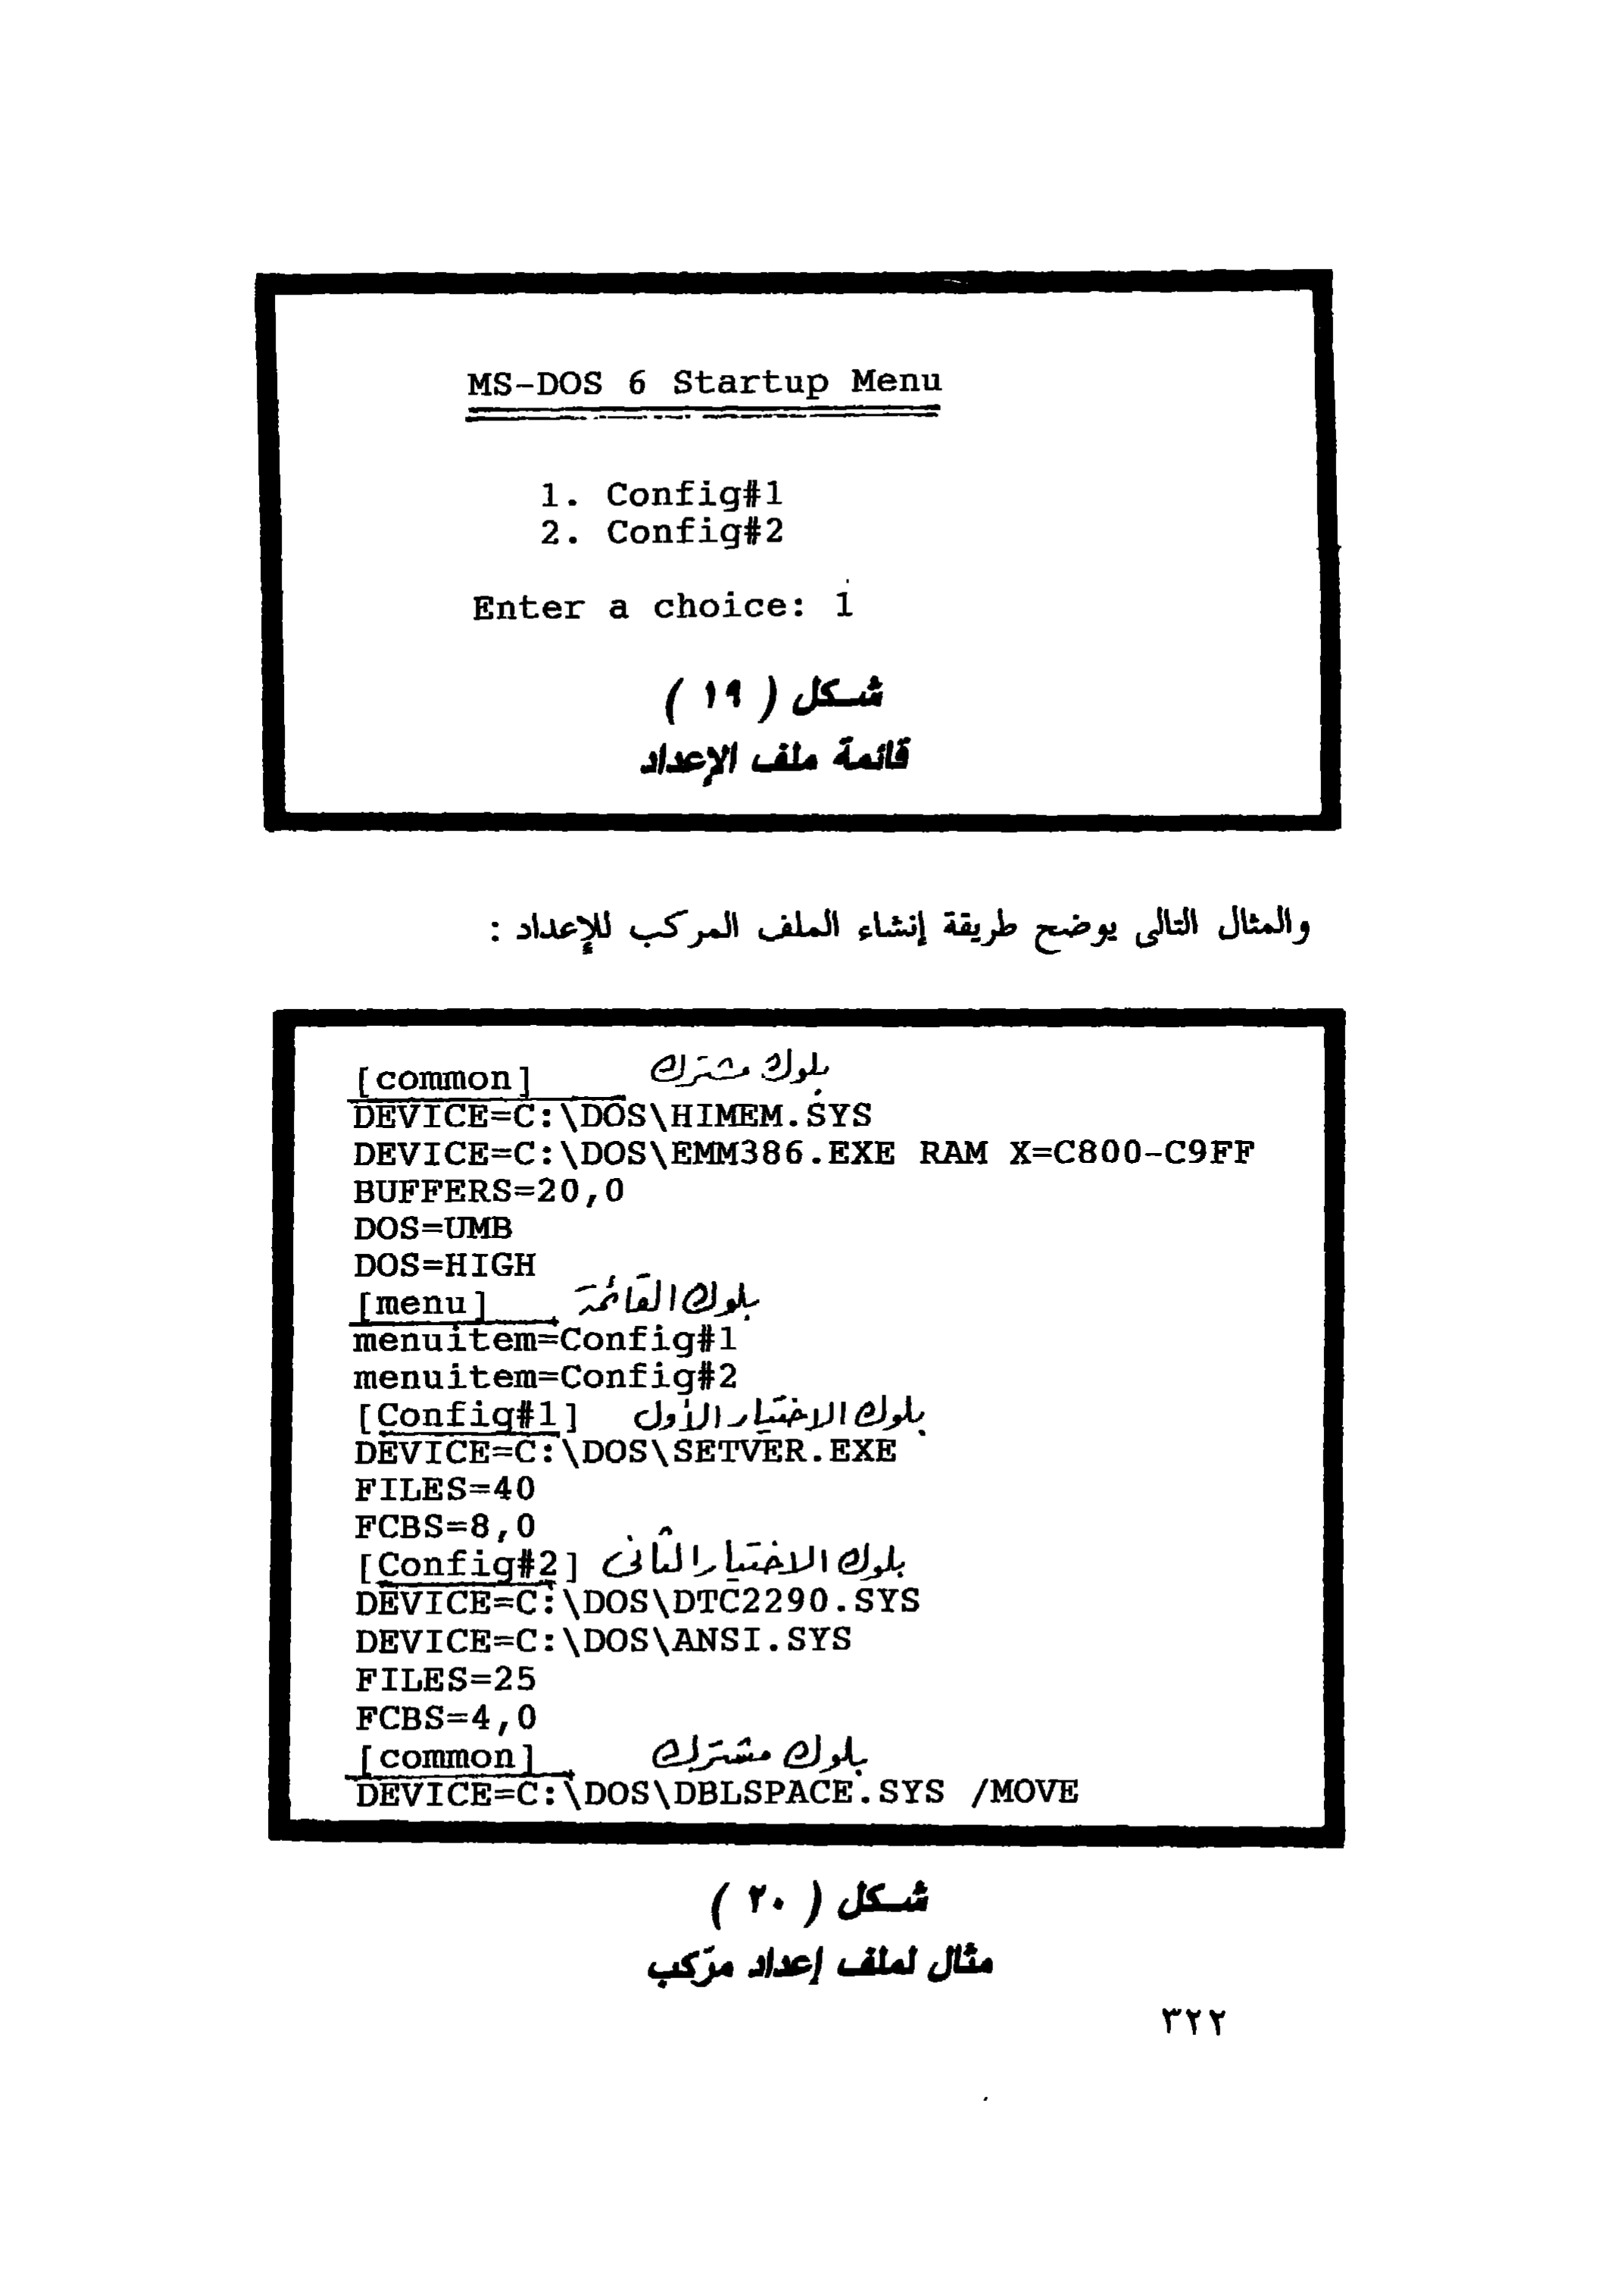 MS-DOS 6 Startup Menu
1. Config#1
2. Config#2
Enter a choice: 1
شكل ( ١٩ )
قائمة ملف الإعداد
والمثال التالى يوضح طريقة إنشاء الملف المركب للإعداد :
[common] بلوك مشترك
DEVICE=C:\DOS\HIMEM.SYS
DEVICE=C:\DOS\EMM386.EXE RAM X=C800-C9FF
BUFFERS=20,0
DOS=UMB
DOS=HIGH
[menu] بلوك القائمة
menuitem=Config#1
menuitem=Config#2
[Config#1] بلوك الاختيار الأول
DEVICE=C:\DOS\SETVER.EXE
FILES=40
FCBS=8,0
[Config#2] بلوك الاختيار الثانى
DEVICE=C:\DOS\DTC2290.SYS
DEVICE=C:\DOS\ANSI.SYS
FILES=25
FCBS=4,0
[common] بلوك مشترك
DEVICE=C:\DOS\DBLSPACE.SYS /MOVE
شكل ( ٢٠ )
مثال لملف إعداد مركب
٣٢٢